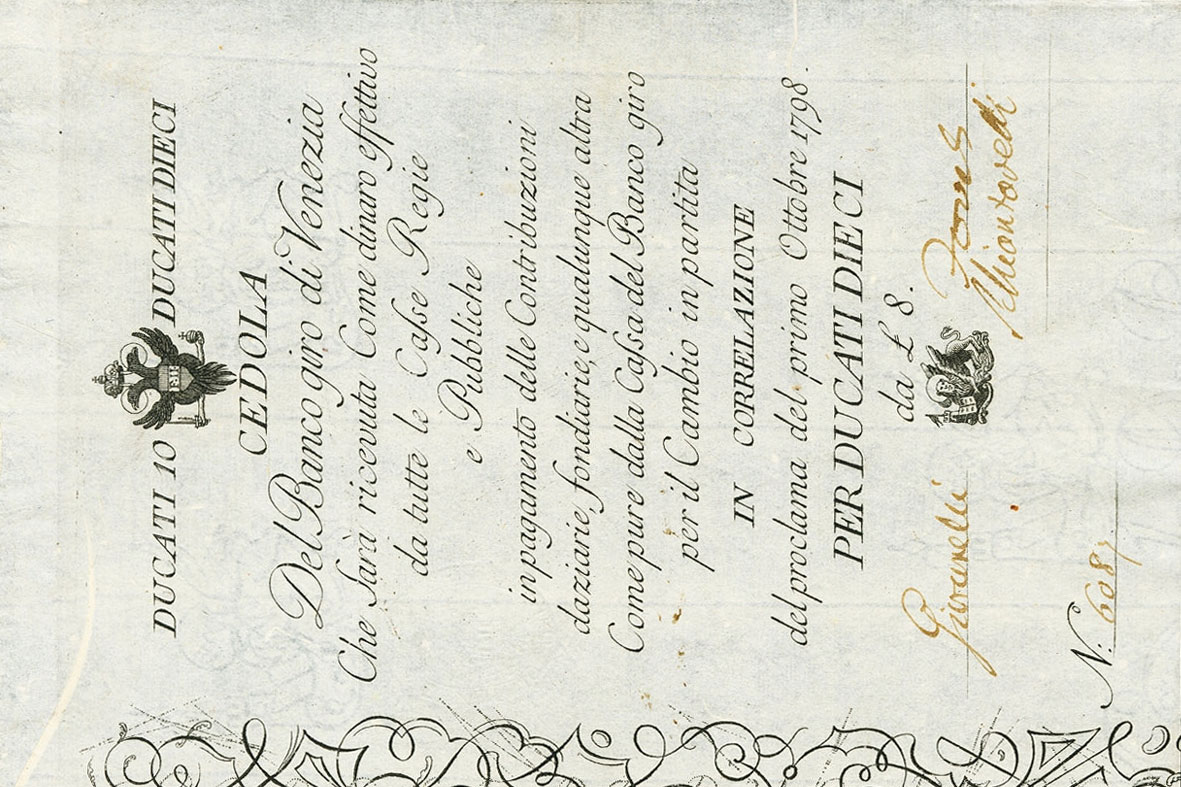 DUCATI 10 DUCATI DIECI
CEDOLA
Del Banco giro di Venezia
Che sarà ricevuta Come dinaro effettivo
da tutte le Casse Regie
e Pubbliche
in pagamento delle Contribuzioni
daziarie, fondiarie, e qualunque altra
Come pure dalla Cassa del Banco giro
per il Cambio in partita
IN CORRELAZIONE
del proclama del primo Ottobre 1798.
PER DUCATI DIECI
da £ 8.
Giovanelli
N. 6087